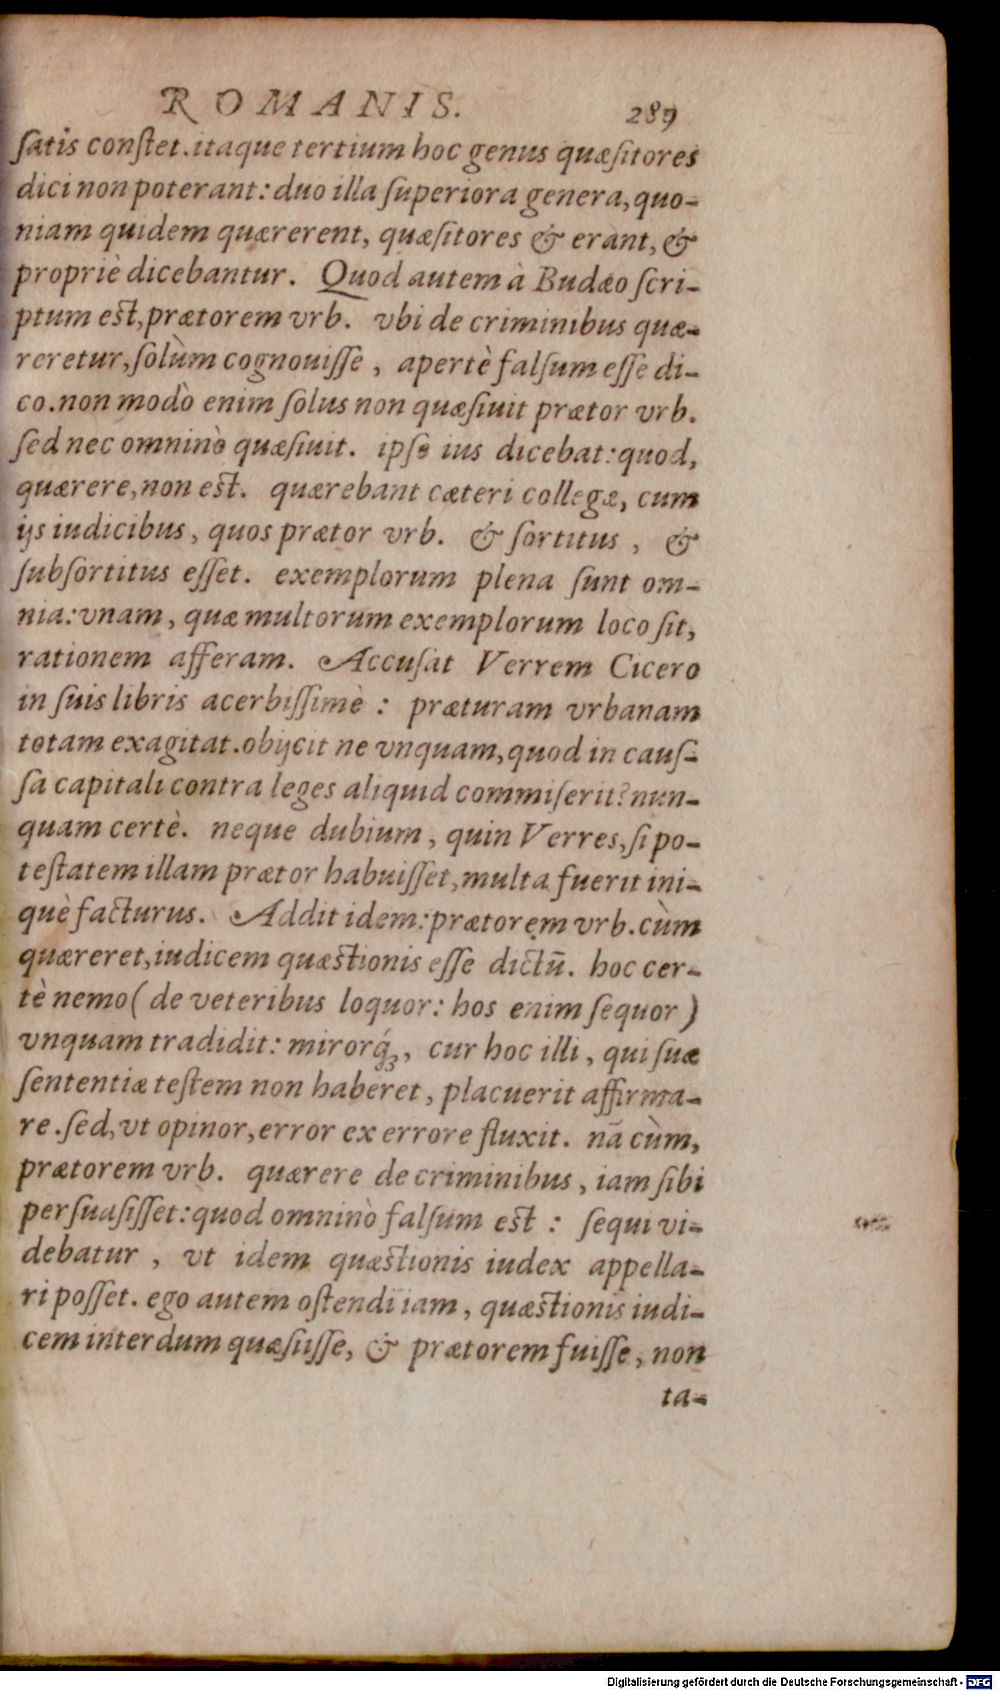 ROMANIS. 289
ſatis conſtet. itaque tertium hoc genus quæſitores
dici non poterant: duo illa ſuperiora genera, quo-
niam quidem quærerent, quæſitores & erant, &
propriè dicebantur. Quod autem à Budæo ſcri-
ptum eſt, prætorem vrb. vbi de criminibus quæ-
reretur, ſolùm cognouiſſe, apertè falſum eſſe di-
co. non modò enim ſolus non quæſiuit prætor vrb.
ſed nec omninò quæſiuit. ipſe ius dicebat: quod,
quærere, non eſt. quærebant cæteri collegæ, cum
ijs iudicibus, quos prætor vrb. & ſortitus, &
ſubſortitus eſſet. exemplorum plena ſunt om-
nia: vnam, quæ multorum exemplorum loco ſit,
rationem afferam. Accuſat Verrem Cicero
in ſuis libris acerbiſſimè: præturam vrbanam
totam exagitat. obijcit ne vnquam, quod in cauſ-
ſa capitali contra leges aliquid commiſerit? nun-
quam certè. neque dubium, quin Verres, ſi po-
teſtatem illam prætor habuiſſet, multa fuerit ini-
què facturus. Addit idem: prætorem vrb. cùm
quæreret, iudicem quæſtionis eſſe dictū. hoc cer-
tè nemo (de veteribus loquor: hos enim ſequor)
vnquam tradidit: mirorq́ꝫ, cur hoc illi, qui ſuæ
ſententiæ teſtem non haberet, placuerit affirma-
re. ſed, vt opinor, error ex errore fluxit. nā cùm,
prætorem vrb. quærere de criminibus, iam ſibi
perſuaſiſſet: quod omninò falſum eſt: ſequi vi-
debatur, vt idem quæſtionis iudex appella-
ri poſſet. ego autem oſtendi iam, quæſtionis iudi-
cem interdum quæſiiſſe, & prætorem fuiſſe, non
ta-
Digitalisierung gefördert durch die Deutsche Forschungsgemeinschaft - DFG